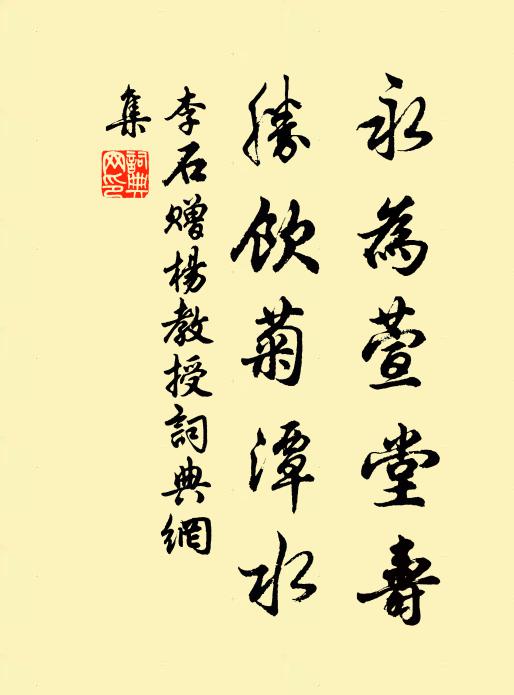 永為萱堂壽
勝飲菊潭水
李石赠楊教授詞典網
集
詞典網印